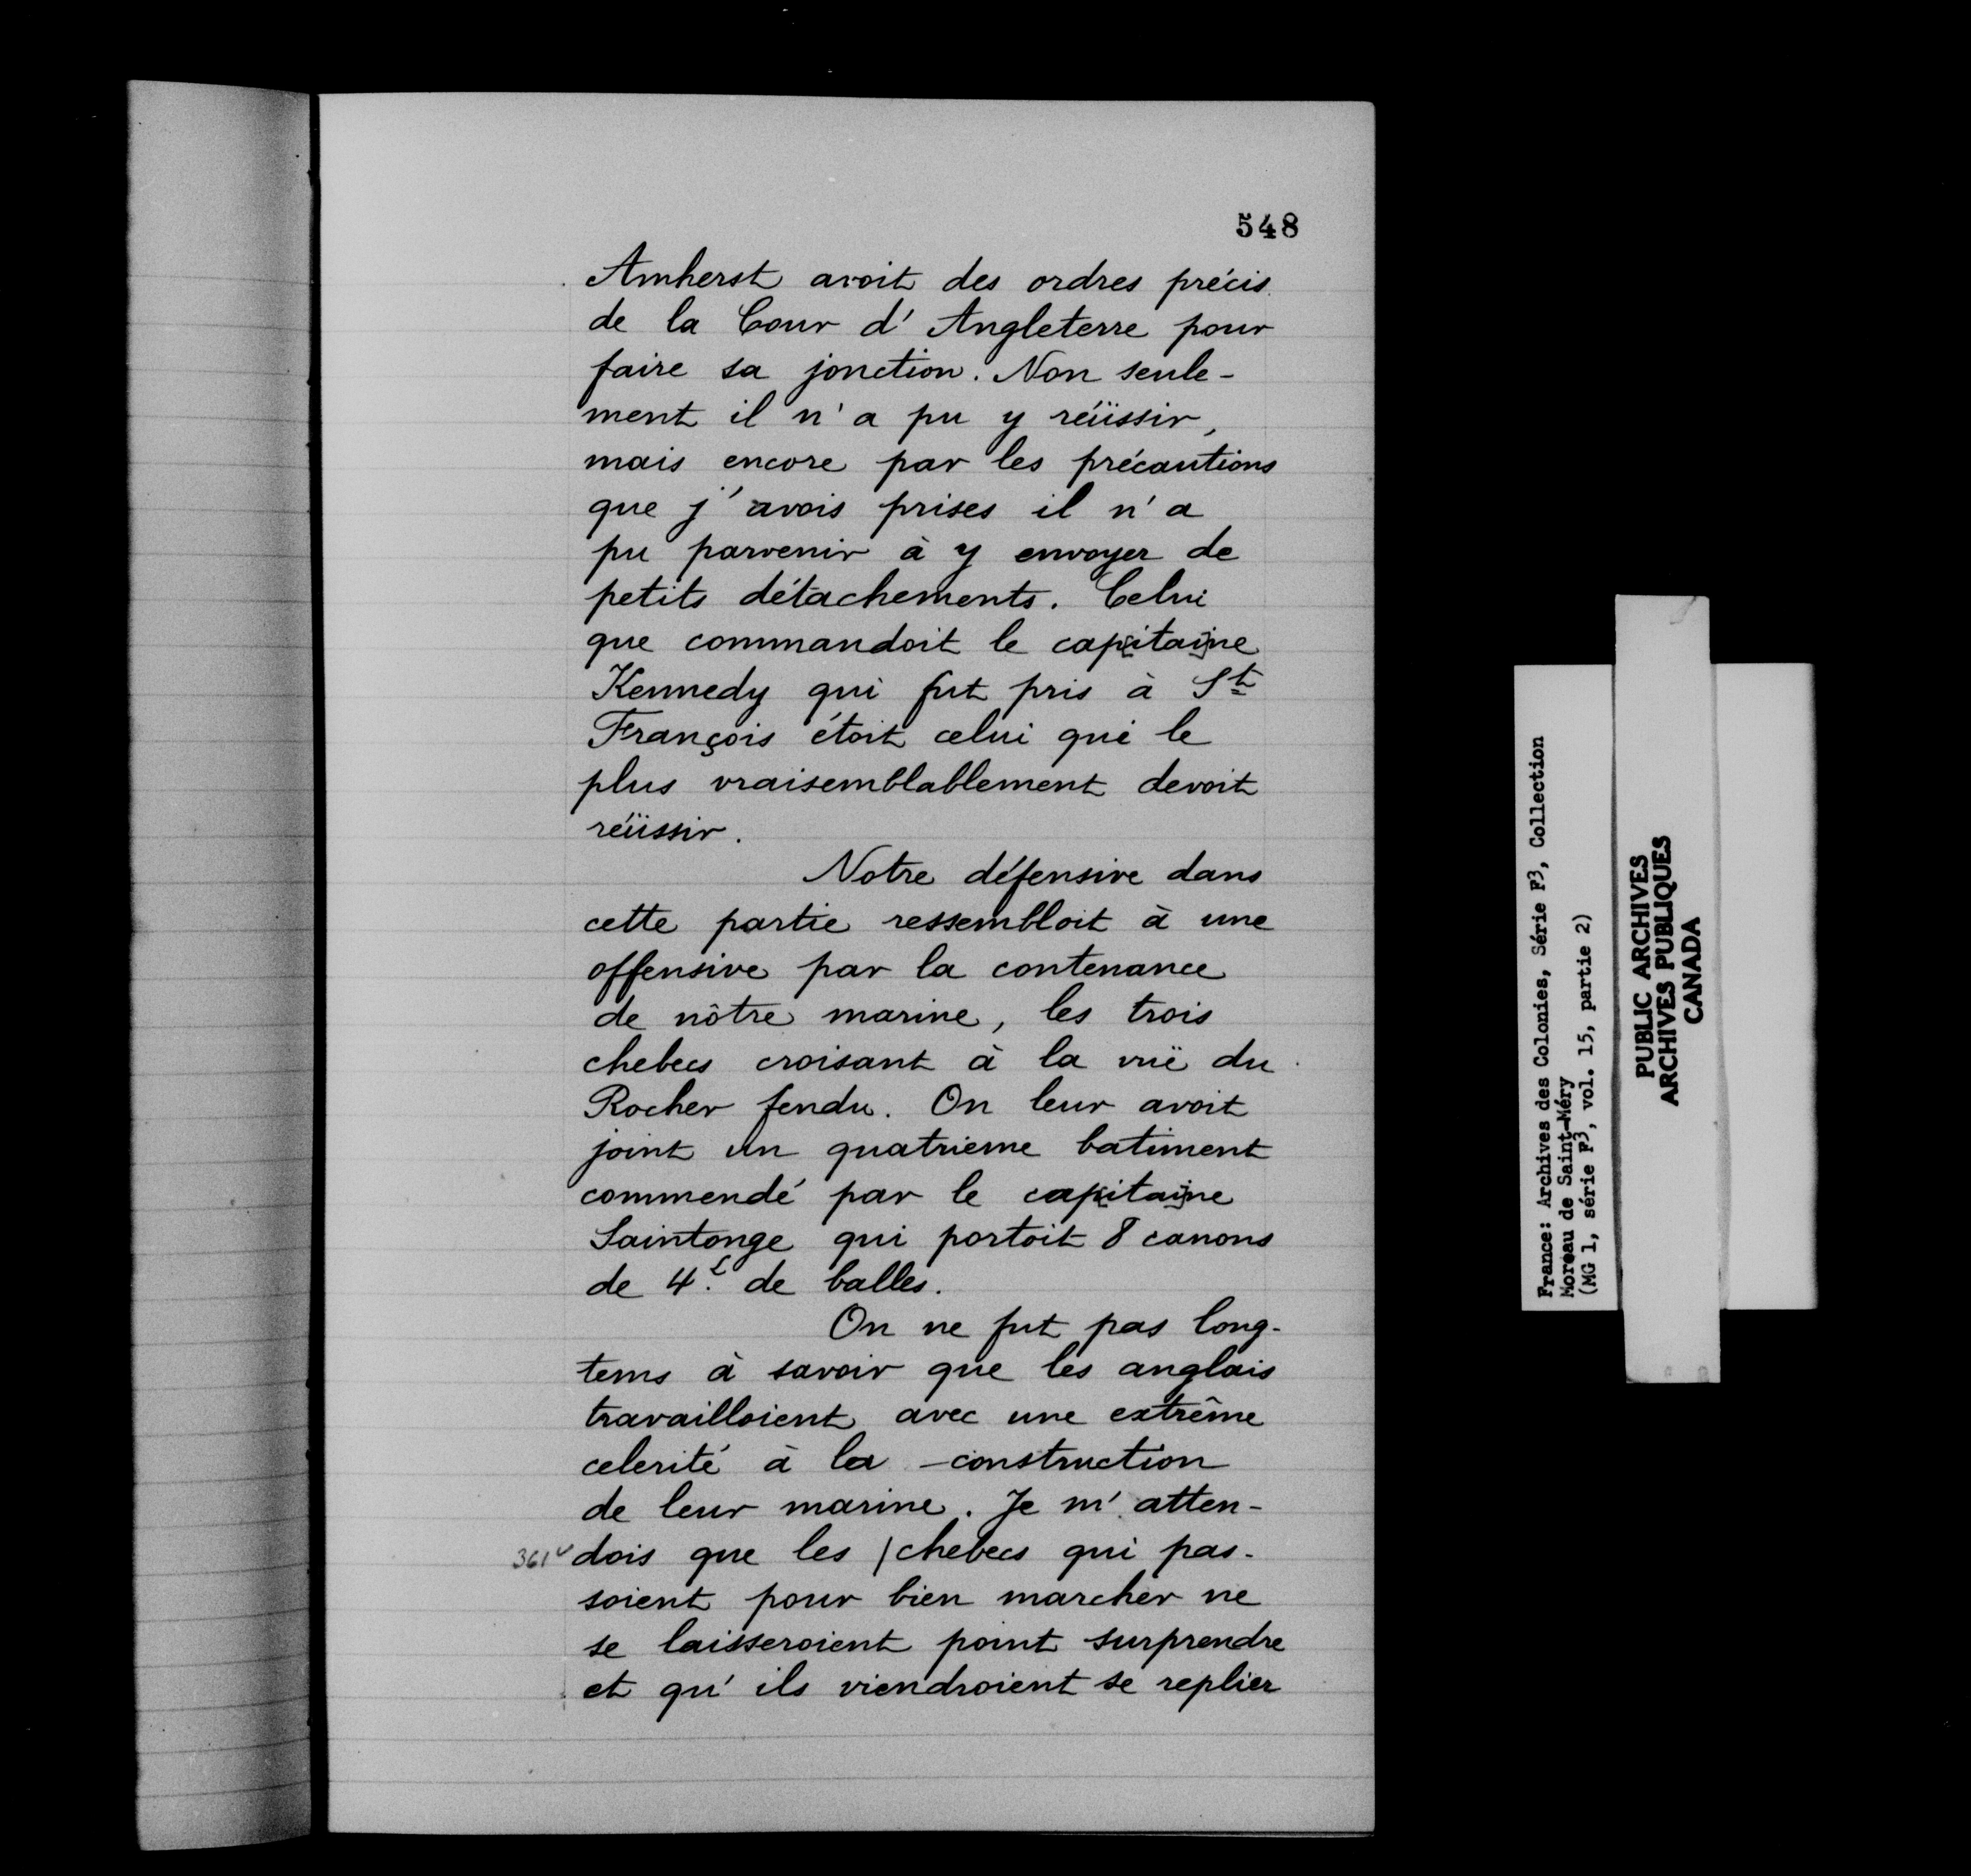 548
Amherst avoit des ordres précis
de la Cour d'Angleterre pour
faire sa jonction. Non seule-
ment il n'a pu y réüssir,
mais encore par les précautions
que j'avois prises il n'a
pu parvenir à y envoyer de
petits détachements. Celui
que commandoit le cap[itai]ne
Kennedy qui fut pris à St
François étoit celui qui le
plus vraisemblablement devoit
réüssir.
Notre défensive dans
cette partie ressembloit à une
offensive par la contenance
de nôtre marine, les trois
chebecs croisant à la vuë du
Rocher fendu. On leur avoit
joint un quatrieme batiment
commendé par le cap[itai]ne
Saintonge qui portoit 8 canons
de 4.£ de balles.
On ne fut pas long-
tems à savoir que les anglais
travailloient avec une extrême
celerité à la -construction
de leur marine. Je m'atten-
361v dois que les /chebecs qui pas-
soient pour bien marcher ne
se laisseroient point surprendre
et qu'ils viendroient se replier
France: Archives des Colonies, Série F3, Collection
Moreau de Saint-Méry
(MG 1, série F3, vol. 15, partie 2)
PUBLIC ARCHIVES
ARCHIVES PUBLIQUES
CANADA